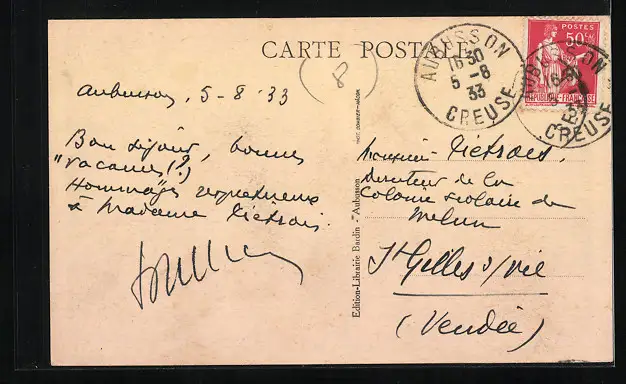 CARTE POSTALE
(8)
Aubusson, 5-8-33
Bon séjour, bonnes
"vacances (?)
Hommages respectueux
à Madame
Monsieur
Directeur de la
Colonie scolaire de
Melun
St Gilles s/vie
(Vendée)
Edition-Librairie Bardin - Aubusson
AUBUSSON
16 30
5 -8
33
CREUSE
POSTES
50c
REPUBLIQUE-FRANÇAISE
AUBUSSON
CREUSE